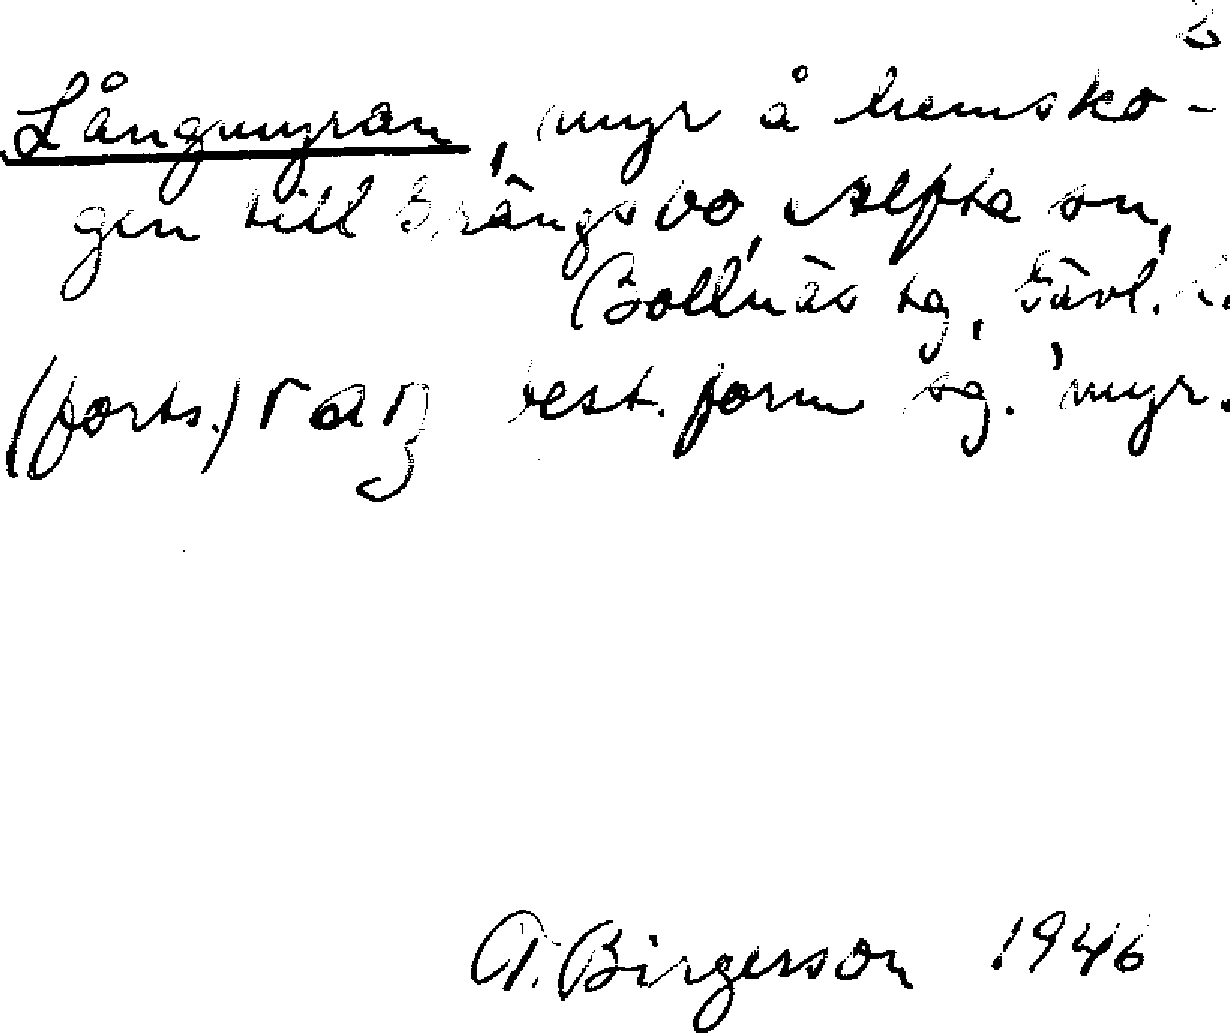 2
Långmyran, myr å hemsko-
gen till Grängsbo, Alfta sn,
Bollnäs tg, Gävl. l.
(forts.) ran best. form sg. 'myr.'
T. Birgerson 1946